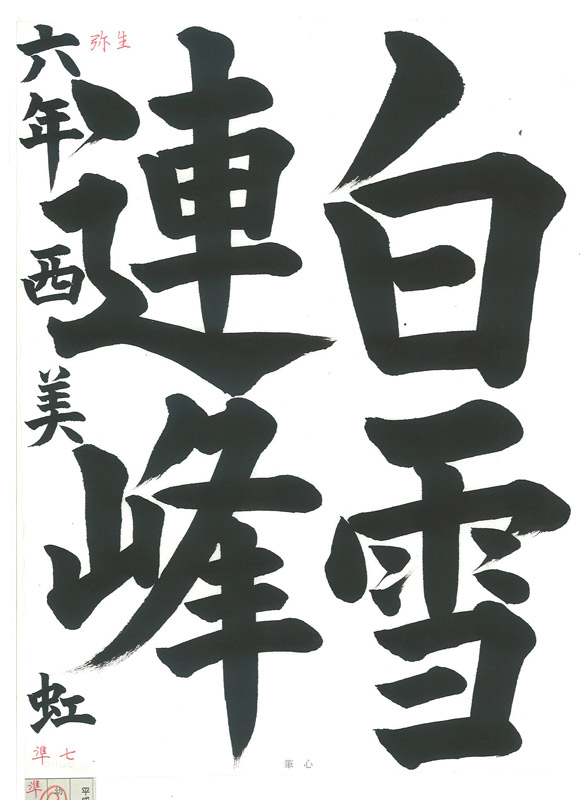 白雪
連峰
六年 西 美 虹
弥生
準七
筆心
準
幼
平